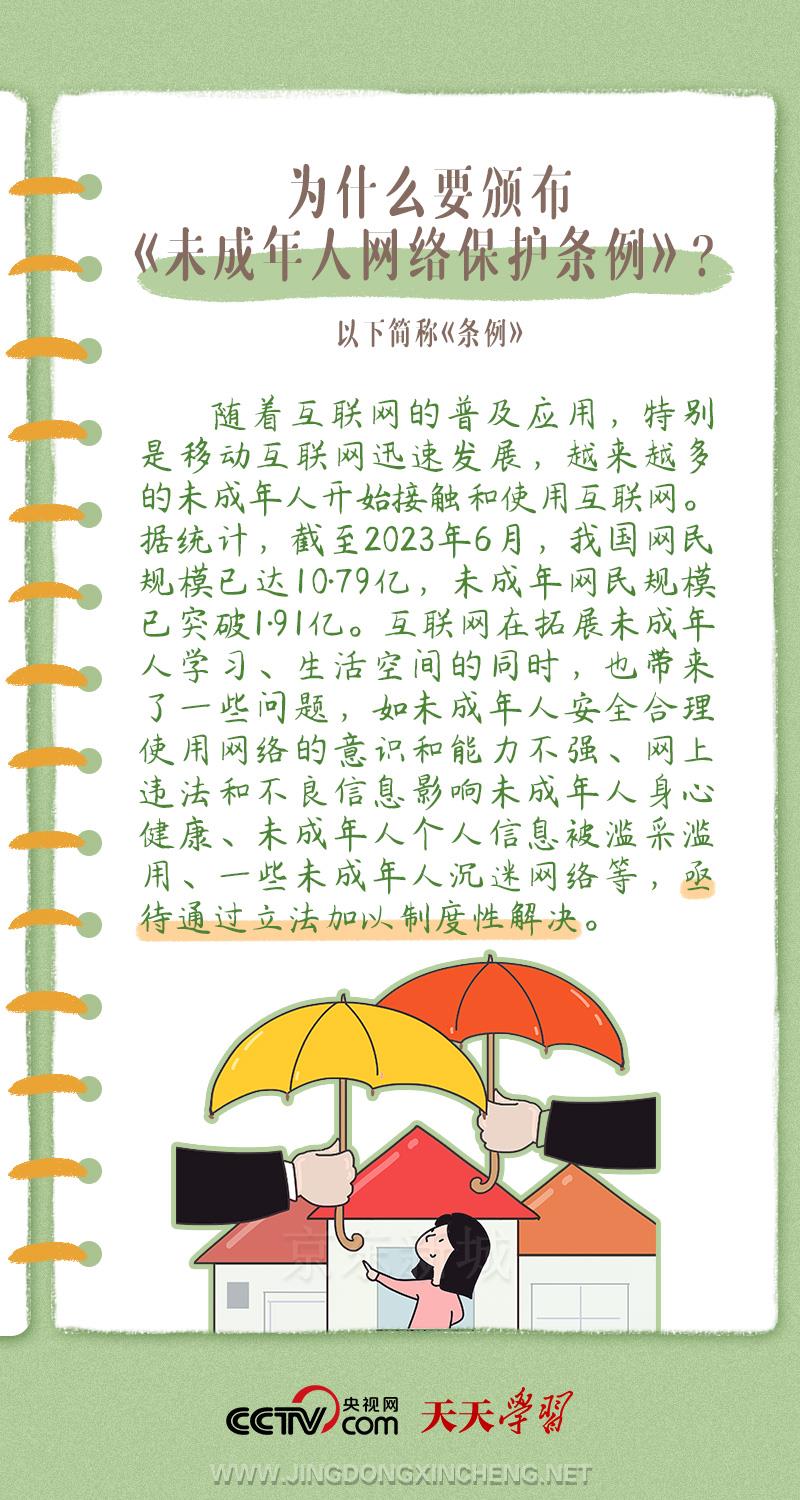 为什么要颁布
《未成年人网络保护条例》?
以下简称《条例》
随着互联网的普及应用，特别
是移动互联网迅速发展，越来越多
的未成年人开始接触和使用互联网。
据统计，截至2023年6月，我国网民
规模已达10·79亿，未成年网民规模
已突破1·91亿。互联网在拓展未成年
人学习、生活空间的同时，也带来
了一些问题，如未成年人安全合理
使用网络的意识和能力不强、网上
违法和不良信息影响未成年人身心
健康、未成年人个人信息被滥采滥
用、一些未成年人沉迷网络等，亟
待通过立法加以制度性解决。
京东新城
CCTV.com 央视网 天天学習
WWW.JINGDONGXINCHENG.NET